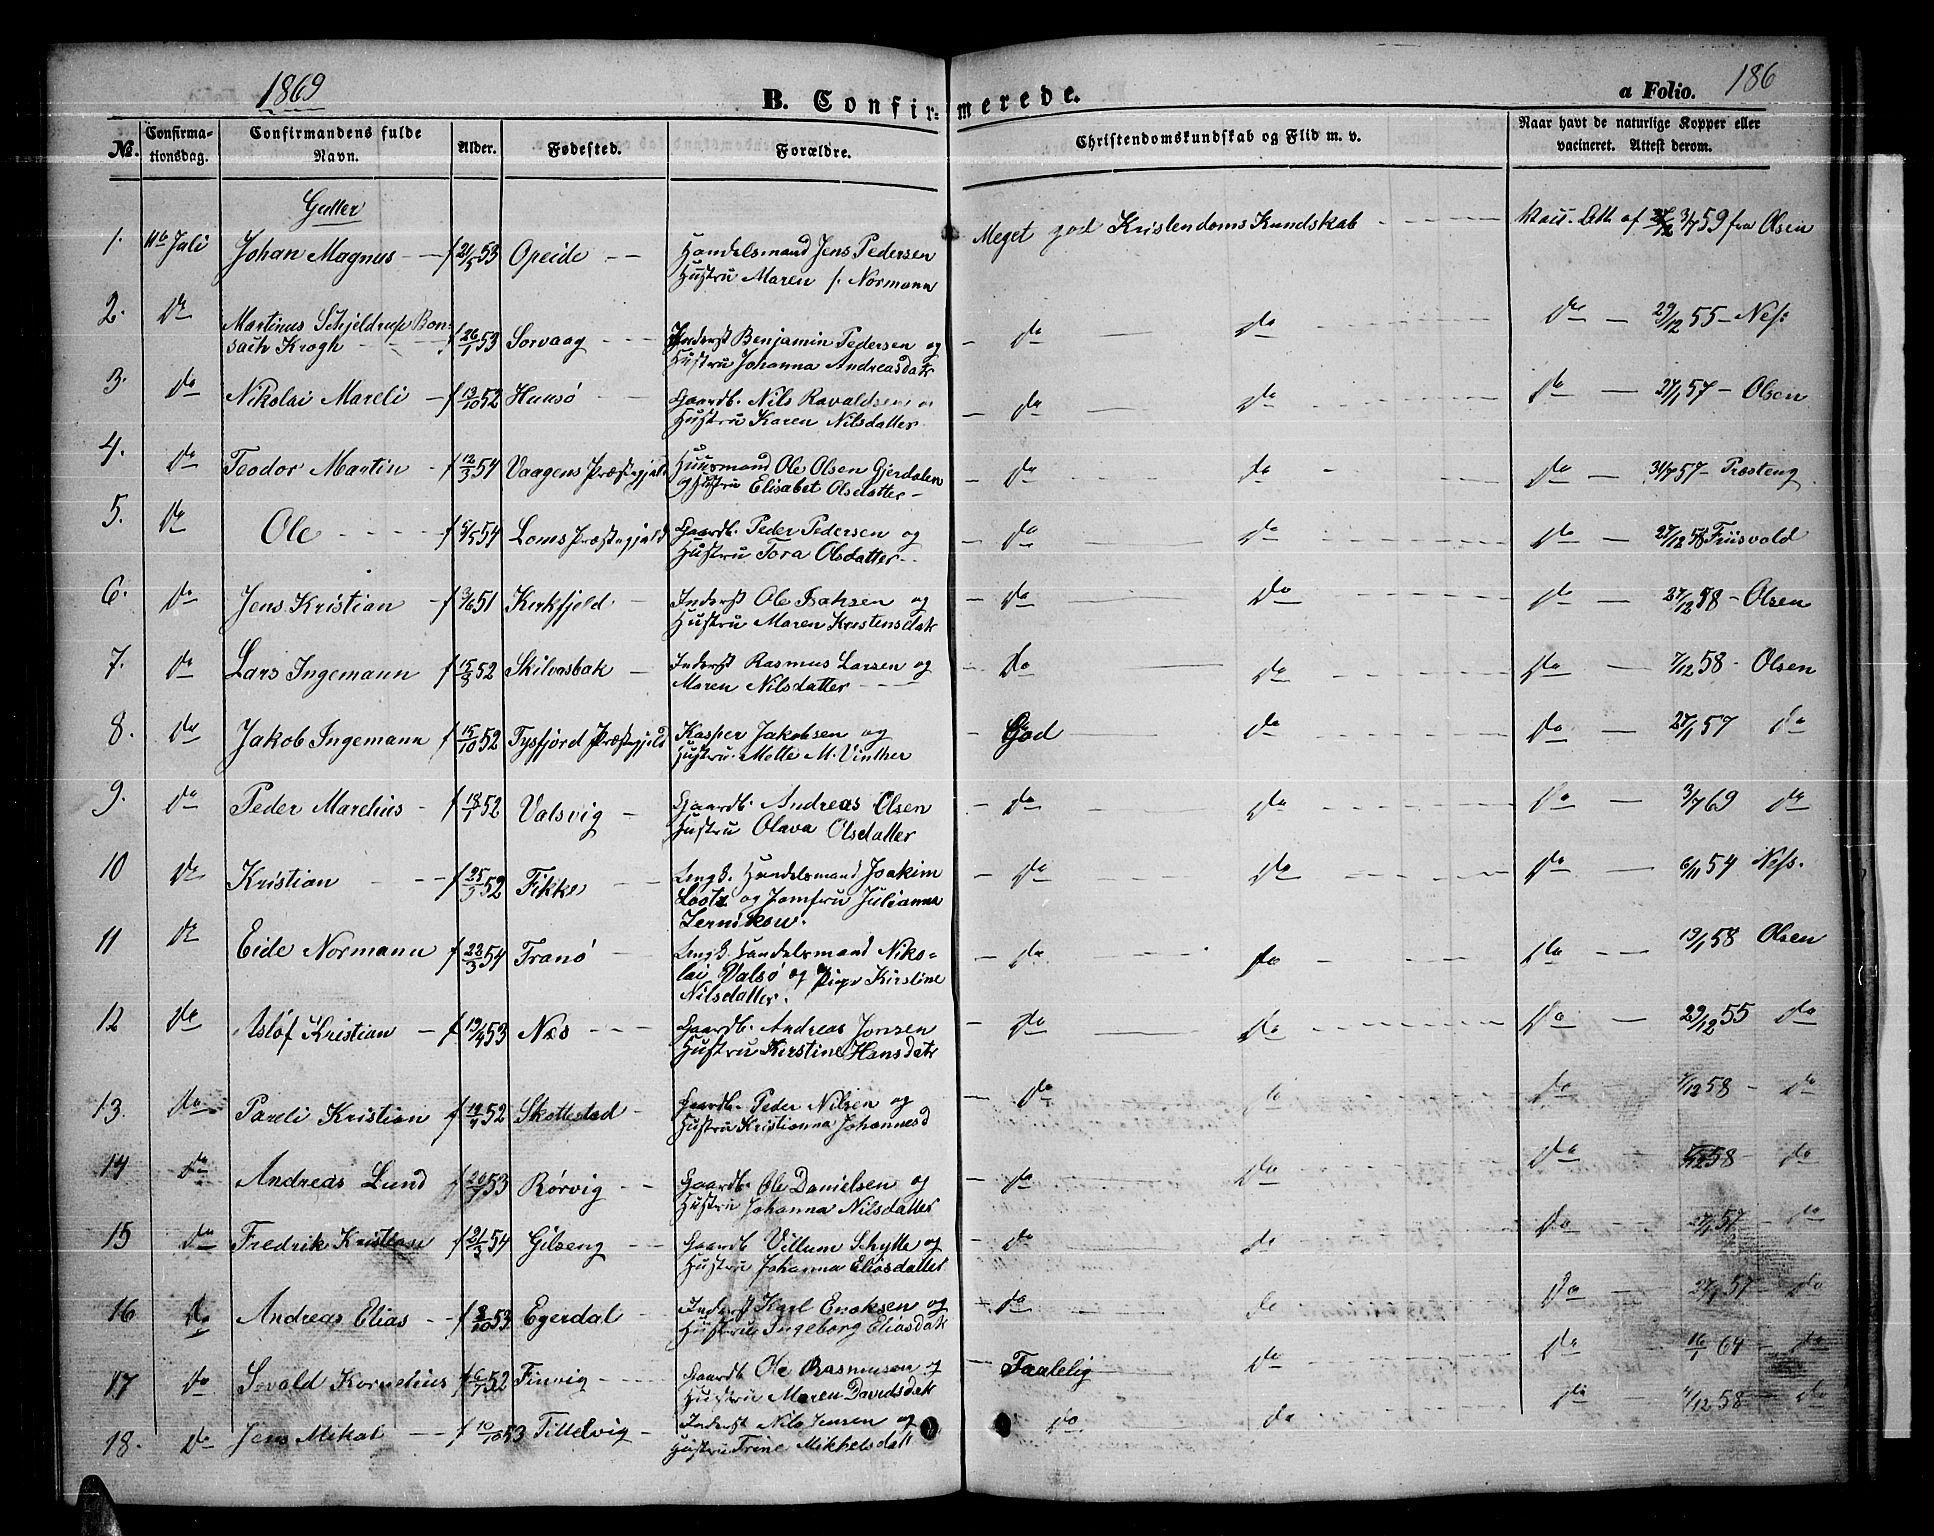 1869
B. Confirmerede.
a Folio. 186
№.
Confirmationsdag.
Confirmandens fulde Navn.
Alder.
Fødested.
Forældre.
Christendomskundskab og Flid m. v.
Naar havt de naturlige Kopper eller vacineret. Attest derom.
Gutter
1. 11te Juli Johan Magnus f 21/5 53 Opeide Handelsmand Jens Pedersen Meget god Kristendoms Kundskab Att. af 3/7 59 fra Olsen
Hustru Maren f. Normann
2. do Martinus Schjeldrup Bon-
sach Krogh f 26/1 53 Sorvaag Inderst Benjamin Pedersen og do do do 29/12 55 Nes:
Hustru Johanna Andreasdatr
3. do Nikolai Mareli f 13/10 52 Hunsø Gaardb. Nils Ravaldsen do do do 27/1 57 Olsen
Hustru Karen Nilsdatter
4. do Teodor Martin f 12/3 54 Vaagens Præstegjæld Huusmand Ole Olsen Gjerdalen do do do 57 Præsteng
og Hustru Elisabet Olsdatter
5. do Ole f 5/5 54 Loms Præstegjæld Gaardb. Peder Pedersen og do do do 27/12 58 Friisvold
Hustru Tora Olsdatter
6. do Jens Kristian f 3/6 51 Kirkfjeld Inderst Ole Isaksen og do do do 27/12 58 Olsen
Hustru Maren Kristensdatr
7. do Lars Ingemann f 15/8 52 Skilvasbak Inderst Rasmus Larsen og do do do 7/12 58 Olsen
Maren Nilsdatter
8. do Jakob Ingemann f 15/10 52 Tysfjord Præstegjeld Kasper Jakobsen og God do do 27/1 57 do
Hustru Mette M. Vinther
9. do Peder Marelius f 18/1 52 Valsvig Gaardb. Andreas Olsen do do do 3/7 69 do
Hustru Olava Olsdatter
10 do Kristian f 25/3 52 Fikke Ungk. Handelsmand Joakim do do do 6/11 54 Ness.
Lootz og Jomfru Julianna
Zernikow.
11 do Eide Normann f 22/3 54 Tranø Ungk. Handelsmand Niko- do do do 19/1 58 Olsen
lai Valsø og Pige Kirstine
Nilsdatter.
12 do Asløf Kristian f 19/4 53 Næs Gaardb. Andreas Jonsen do do do 29/12 55 do
Hustru Kirstine Hansdatr
13. do Pareli Kristian f 52 Skottestad Gaardb. Peder Nilsen og do do do 7/12 58 do
Hustru Kristianna Johannesd
14 do Andreas Lund f 53 Rørvig Gaardb. Ole Danielsen og do do do 58 do
Hustru Johanna Nilsdatter
15 do Fredrik Kristian f 21/3 54 Gilseng Gaardb Villum Schytte og do do do 27/1 57 do
Hustru Johanna Eliasdatter
16 do Andreas Elias f 8/10 53 Egerdal Inderst Karl Enoksen og do do do 27/1 57 do
Hustru Ingeborg Eliasdatr
17 do Sevald Kornelius f 6/7 52 Finvig Gaardb Ole Rasmussen og Taalelig do do 16/1 64 do
Hustru Maren Davidsdatr
18. do Jens Mikal f 10/10 53 Tittelvig Inderst Nils Jensen og do do do 58 do
Hustru Trine Mikkelsdatt